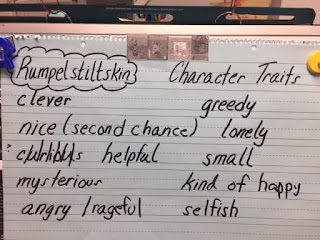 Rumpelstiltskin Character Traits
clever greedy
nice (second chance) lonely
? helpful small
mysterious kind of happy
angry / rageful selfish